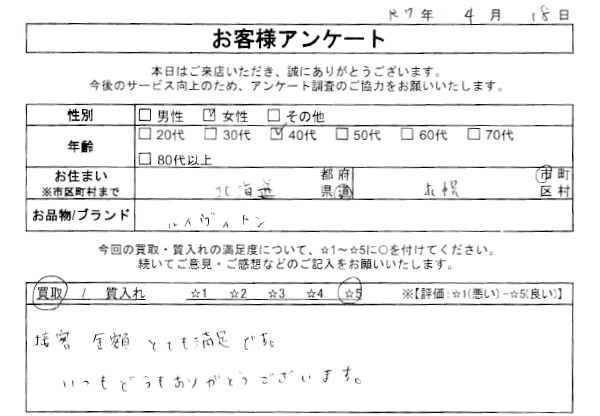 R7年 4月 18日
お客様アンケート
本日はご来店いただき、誠にありがとうございます。
今後のサービス向上のため、アンケート調査のご協力をお願いいたします。
性別 □男性 ☑女性 □その他
年齢 □20代 □30代 ☑40代 □50代 □60代 □70代
□80代以上
お住まい ※市区町村まで 北海道 都府県道 札幌 市町区村
お品物/ブランド ルイヴィトン
今回の買取・質入れの満足度について、☆1～☆5に○を付けてください。
続いてご意見・ご感想などのご記入をお願いいたします。
買取 / 質入れ ☆1 ☆2 ☆3 ☆4 ☆5 ※【評価:☆1(悪い)−☆5(良い)】
接客 金額 とても満足です。
いつもどうもありがとうございます。